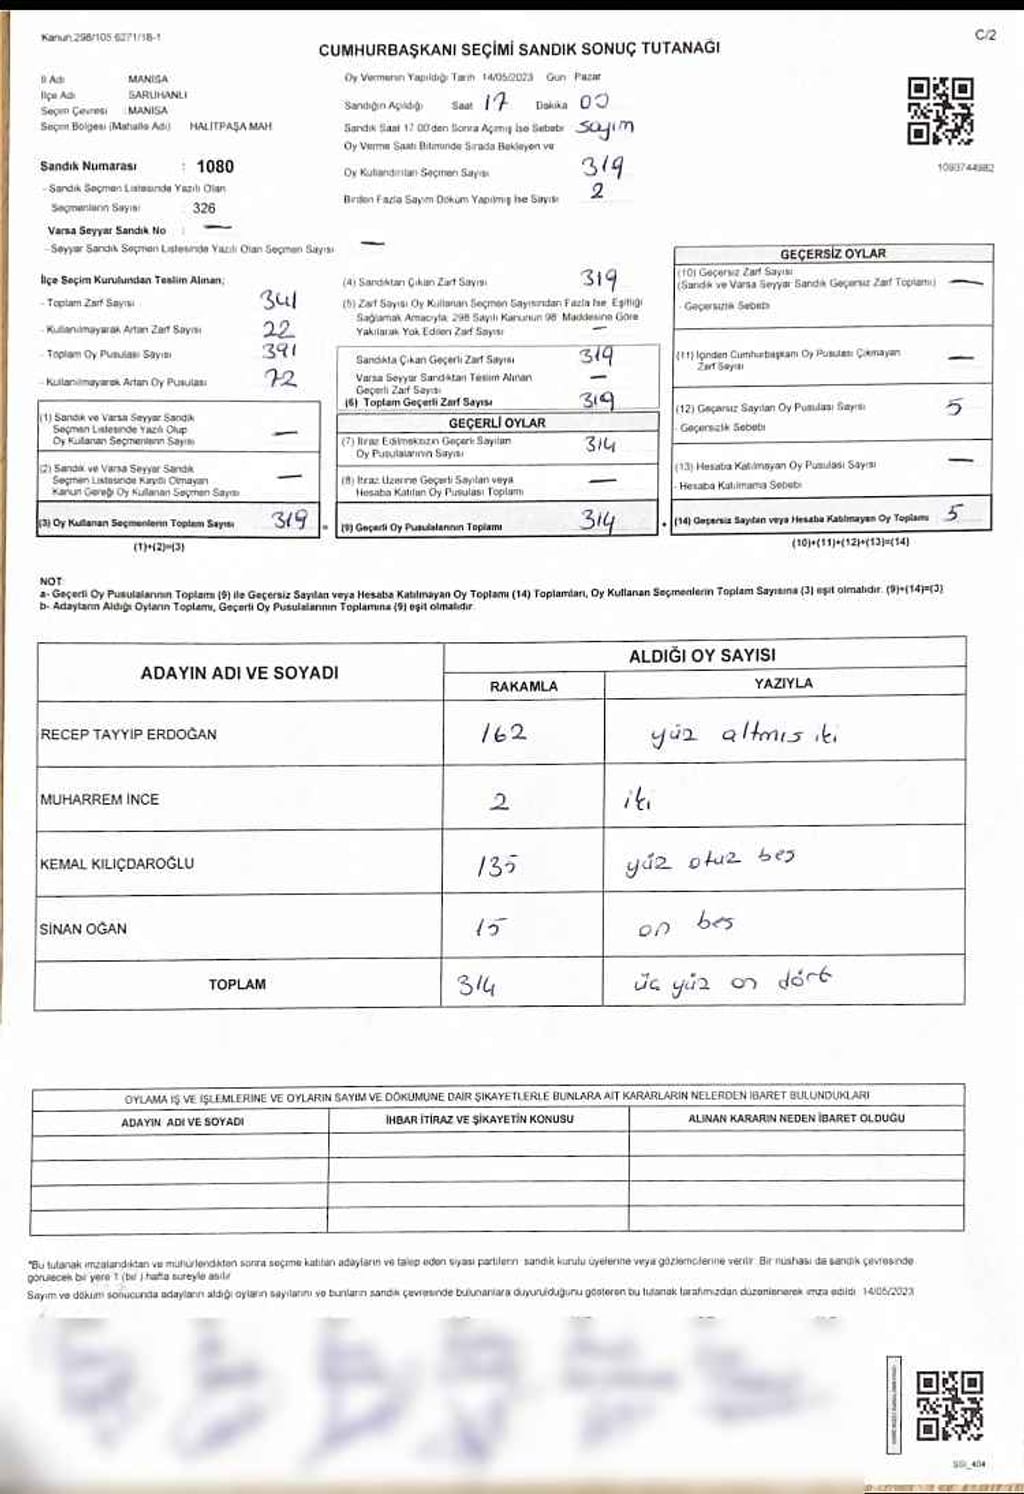 Kanun 298/105 6271/18-1
C/2
CUMHURBAŞKANI SEÇİMİ SANDIK SONUÇ TUTANAĞI
İl Adı MANİSA
İlçe Adı SARUHANLI
Seçim Çevresi : MANİSA
Seçim Bölgesi (Mahalle Adı) HALİTPAŞA MAH
Sandık Numarası : 1080
- Sandık Seçmen Listesinde Yazılı Olan
Seçmenlerin Sayısı 326
Varsa Seyyar Sandık No : —
- Seyyar Sandık Seçmen Listesinde Yazılı Olan Seçmen Sayısı —
Oy Vermenin Yapıldığı Tarih 14/05/2023 Gün Pazar
Sandığın Açıldığı Saat 17 Dakika 00
Sandık Saat 17 00'den Sonra Açmış İse Sebebi sayım
Oy Verme Saati Bitiminde Sırada Bekleyen ve
Oy Kullandırılan Seçmen Sayısı 319
Birden Fazla Sayım Döküm Yapılmış İse Sayısı 2
1093744982
İlçe Seçim Kurulundan Teslim Alınan;
- Toplam Zarf Sayısı 341
- Kullanılmayarak Artan Zarf Sayısı 22
- Toplam Oy Pusulası Sayısı 391
- Kullanılmayarak Artan Oy Pusulası 72
(1) Sandık ve Varsa Seyyar Sandık
Seçmen Listesinde Yazılı Olup
Oy Kullanan Seçmenlerin Sayısı —
(2) Sandık ve Varsa Seyyar Sandık
Seçmen Listesinde Kayıtlı Olmayan
Kanun Gereği Oy Kullanan Seçmen Sayısı —
(3) Oy Kullanan Seçmenlerin Toplam Sayısı 319
(1)+(2)=(3)
(4) Sandıktan Çıkan Zarf Sayısı 319
(5) Zarf Sayısı Oy Kullanan Seçmen Sayısından Fazla İse, Eşitliği
Sağlamak Amacıyla, 298 Sayılı Kanunun 98 Maddesine Göre
Yakılarak Yok Edilen Zarf Sayısı —
Sandıkta Çıkan Geçerli Zarf Sayısı 319
Varsa Seyyar Sandıktan Teslim Alınan
Geçerli Zarf Sayısı —
(6) Toplam Geçerli Zarf Sayısı 319
GEÇERLİ OYLAR
(7) İtiraz Edilmeksizin Geçerli Sayılan
Oy Pusulalarının Sayısı 314
(8) İtiraz Üzerine Geçerli Sayılan veya
Hesaba Katılan Oy Pusulası Toplamı —
= (9) Geçerli Oy Pusulalarının Toplamı 314
GEÇERSİZ OYLAR
(10) Geçersiz Zarf Sayısı
(Sandık ve Varsa Seyyar Sandık Geçersiz Zarf Toplamı) —
- Geçersizlik Sebebi
(11) İçinden Cumhurbaşkanı Oy Pusulası Çıkmayan
Zarf Sayısı —
(12) Geçersiz Sayılan Oy Pusulası Sayısı 5
- Geçersizlik Sebebi
(13) Hesaba Katılmayan Oy Pusulası Sayısı —
- Hesaba Katılmama Sebebi
+ (14) Geçersiz Sayılan veya Hesaba Katılmayan Oy Toplamı 5
(10)+(11)+(12)+(13)=(14)
NOT:
a- Geçerli Oy Pusulalarının Toplamı (9) ile Geçersiz Sayılan veya Hesaba Katılmayan Oy Toplamı (14) Toplamları, Oy Kullanan Seçmenlerin Toplam Sayısına (3) eşit olmalıdır. (9)+(14)=(3)
b- Adayların Aldığı Oyların Toplamı, Geçerli Oy Pusulalarının Toplamına (9) eşit olmalıdır.
ADAYIN ADI VE SOYADI ALDIĞI OY SAYISI
RAKAMLA YAZIYLA
RECEP TAYYİP ERDOĞAN 162 yüz altmıs iki
MUHARREM İNCE 2 iki
KEMAL KILIÇDAROĞLU 135 yüz otuz bes
SİNAN OĞAN 15 on bes
TOPLAM 314 üc yüz on dört
OYLAMA İŞ VE İŞLEMLERİNE VE OYLARIN SAYIM VE DÖKÜMÜNE DAİR ŞİKAYETLERLE BUNLARA AİT KARARLARIN NELERDEN İBARET BULUNDUKLARI
ADAYIN ADI VE SOYADI İHBAR İTİRAZ VE ŞİKAYETİN KONUSU ALINAN KARARIN NEDEN İBARET OLDUĞU
*Bu tutanak imzalandıktan ve mühürlendikten sonra seçime katılan adayların ve talep eden siyasi partilerin sandık kurulu üyelerine veya gözlemcilerine verilir. Bir nüshası da sandık çevresinde
görülecek bir yere 1 (bir) hafta süreyle asılır
Sayım ve döküm sonucunda adayların aldığı oyların sayılarını ve bunların sandık çevresinde bulunanlara duyurulduğunu gösteren bu tutanak tarafımızdan düzenlenerek imza edildi 14/05/2023
SSI_404